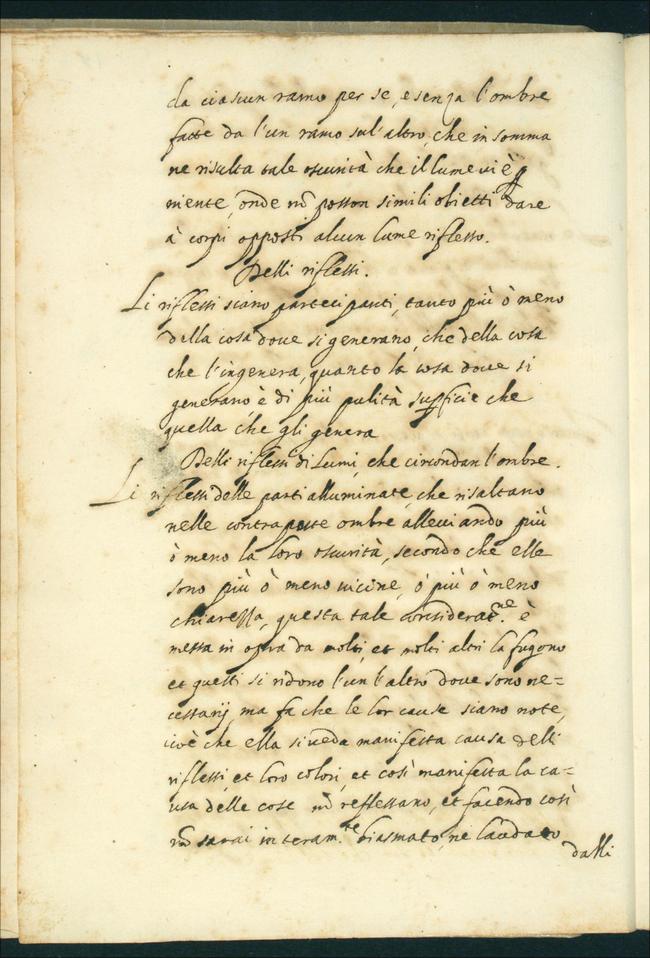 da ciascun ramo per se, e senza l'ombre
fatte da l'un ramo sul'altro, che in somma
ne risulta tale oscurità che il lume vi è
niente, onde nõ posson simili obietti dare
à corpi opposti alcun lume riflesso.
Delli riflessi.
Li riflessi siano partecipanti, tanto più ò meno
della cosa dove si generano, che della cosa
che l'ingenera, quanto la cosa dove si
generano è di più pulità supficie che
quella che gli genera
Delli riflessi di Lumi, che circondan l'ombre.
Li riflessi delle parti alluminate, che risaltano
nelle contraposte ombre alleviando più
ò meno la loro oscurità, secondo che elle
sono più ò meno vicine, ò più ò meno
chiarezza, questa tale considerat.ne è
messa in opra da molti, et molti altri la fugono
et questi si ridono l'un l'altro dove sono ne=
cessarij, ma fa che le lor cause siano note,
cioè che ella si veda manifesta causa delli
riflessi, et loro colori, et così manifesta la ca=
usa delle cose nõ reflessano, et facendo così
nõ sarai interam.te biasmato, ne laudato
dalli